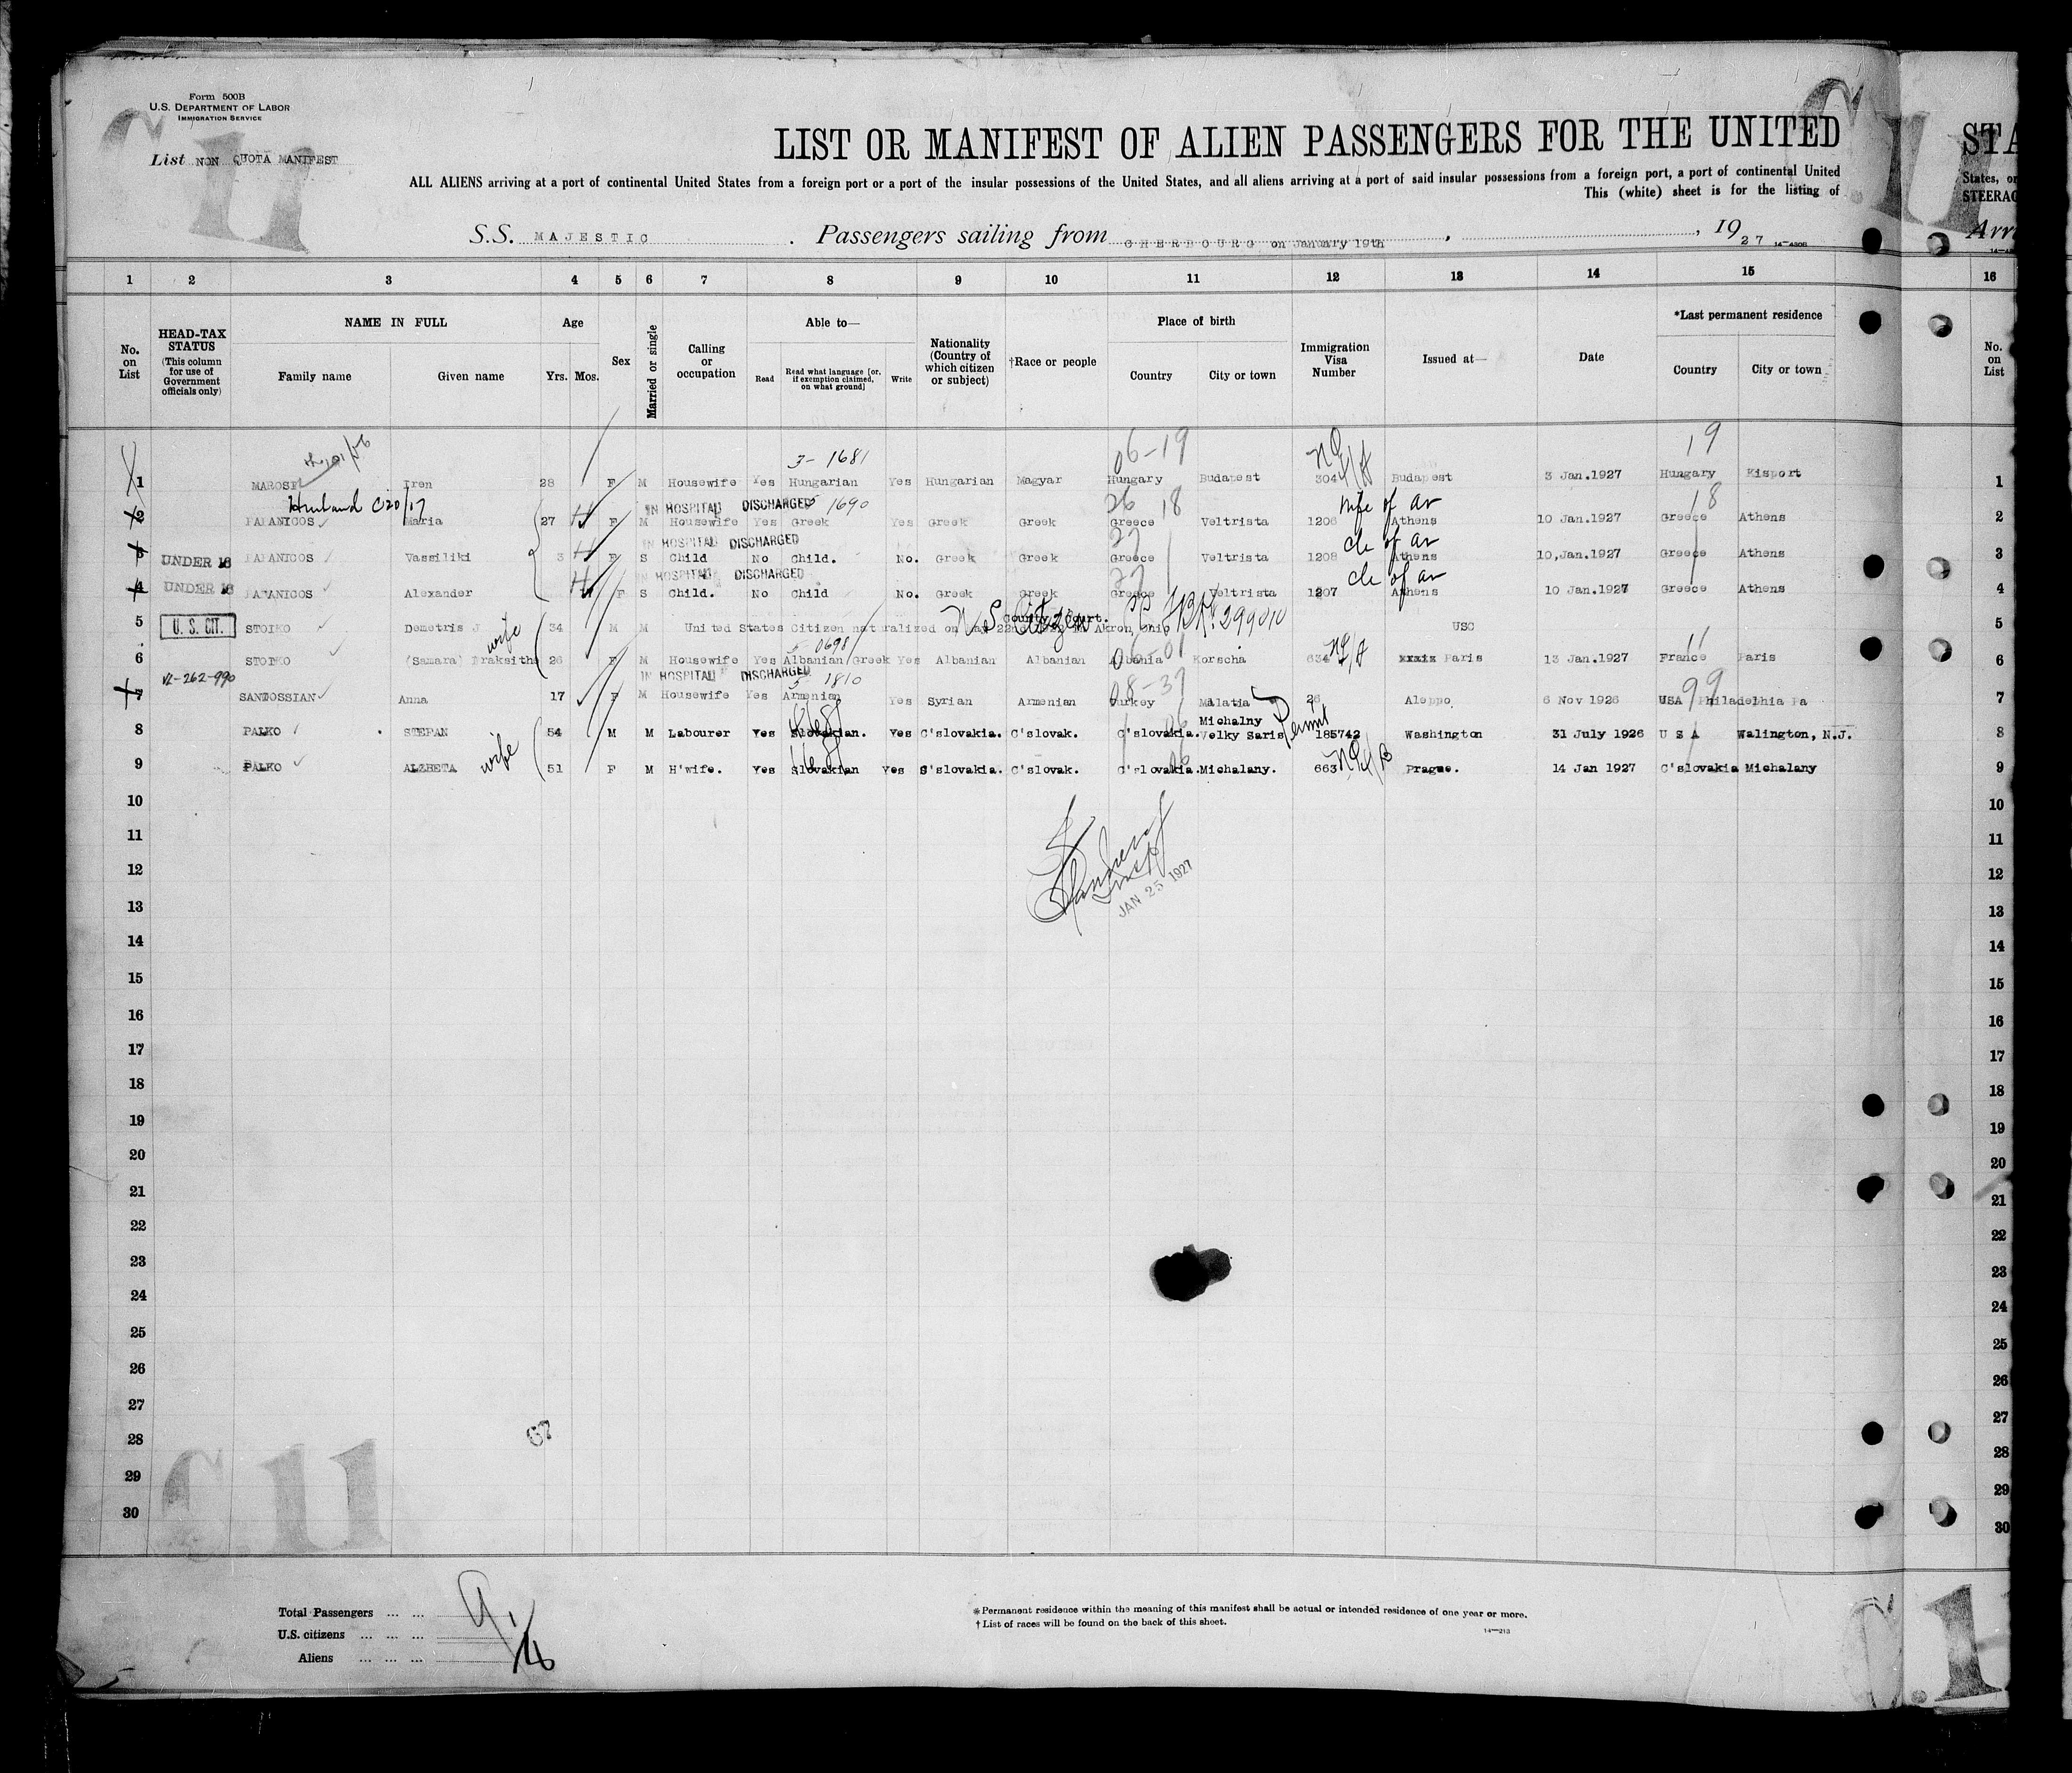 Form 500B
U.S. DEPARTMENT OF LABOR
IMMIGRATION SERVICE
List NON QUOTA MANIFEST
LIST OR MANIFEST OF ALIEN PASSENGERS FOR THE UNITED
STA
ALL ALIENS arriving at a port of continental United States from a foreign port or a port of the insular possessions of the United States, and all aliens arriving at a port of said insular possessions from a foreign port, a port of continental United
States, or
This (white) sheet is for the listing of
STEERAG
S.S. MAJESTIC. Passengers sailing from CHERBOURG on January 19th, 1927
Arri
1 2 3 4 5 6 7 8 9 10 11 12 13 14 15 16
No. on List
HEAD-TAX STATUS (This column for use of Government officials only)
NAME IN FULL
Family name Given name
Age
Yrs. Mos.
Sex
Married or single
Calling or occupation
Able to—
Read Read what language [or, if exemption claimed, on what ground] Write
Nationality (Country of which citizen or subject)
†Race or people
Place of birth
Country City or town
Immigration Visa Number
Issued at—
Date
*Last permanent residence
Country City or town
No. on List
3-1681 06-19 19
1 MAROSI Iren 28 F M Housewife Yes Hungarian Yes Hungarian Magyar Hungary Budapest 304 Budapest 3 Jan.1927 Hungary Kisport 1
Husband C20/17 IN HOSPITAL DISCHARGED 5 1690 26 18 wife of av 18
2 PAPANICOS Maria 27 F M Housewife Yes Greek Yes Greek Greek Greece Veltrista 1206 Athens 10 Jan.1927 Greece Athens 2
IN HOSPITAL DISCHARGED 27 ch of av
3 UNDER 16 PAPANICOS Vassiliki 3 F S Child No Child. No. Greek Greek Greece Veltrista 1208 Athens 10,Jan.1927 Greece Athens 3
IN HOSPITAL DISCHARGED 27 ch of av
4 UNDER 16 PAPANICOS Alexander F S Child. No Child No. Greek Greek Greece Veltrista 1207 Athens 10 Jan.1927 Greece Athens 4
U S Citizen County Court. 299010
5 U. S. CIT. STOIKO Demetris J 34 M M United States Citizen naturalized on Akron, Ohio USC 5
wife 5 0698 06-01 11
6 STOIKO (Samara) Draksitha 26 F M Housewife Yes Albanian Greek Yes Albanian Albanian Albania Korscha 634 Paris 13 Jan.1927 France Paris 6
12-262-990 IN HOSPITAL DISCHARGED 5 1810 08-37 99
7 SANTOSSIAN Anna 17 F M Housewife Yes Armenian Yes Syrian Armenian Turkey Malatia 26 Aleppo 6 Nov 1926 USA Philadelphia Pa 7
Michalny Permit
8 PALKO STEPAN 54 M M Labourer Yes Slovakian. Yes C'slovakia. C'slovak. C'slovakia. Velky Saris 185742 Washington 31 July 1926 U S A Walington, N.J. 8
wife
9 PALKO ALZBETA 51 F M H'wife. Yes Slovakian Yes C'slovakia. C'slovak. C'slovakia. Michalany. 663 Prague. 14 Jan 1927 C'slovakia Michalany 9
10 10
11 11
12 12
JAN 25 1927
13 13
14 14
15 15
16 16
17 17
18 18
19 19
20 20
21 21
22 22
23 23
24 24
25 25
26 26
27 27
28 28
29 29
30 30
Total Passengers ... ... 9
U.S. citizens ... ... ...
Aliens ... ... ...
*Permanent residence within the meaning of this manifest shall be actual or intended residence of one year or more.
†List of races will be found on the back of this sheet.
14—213